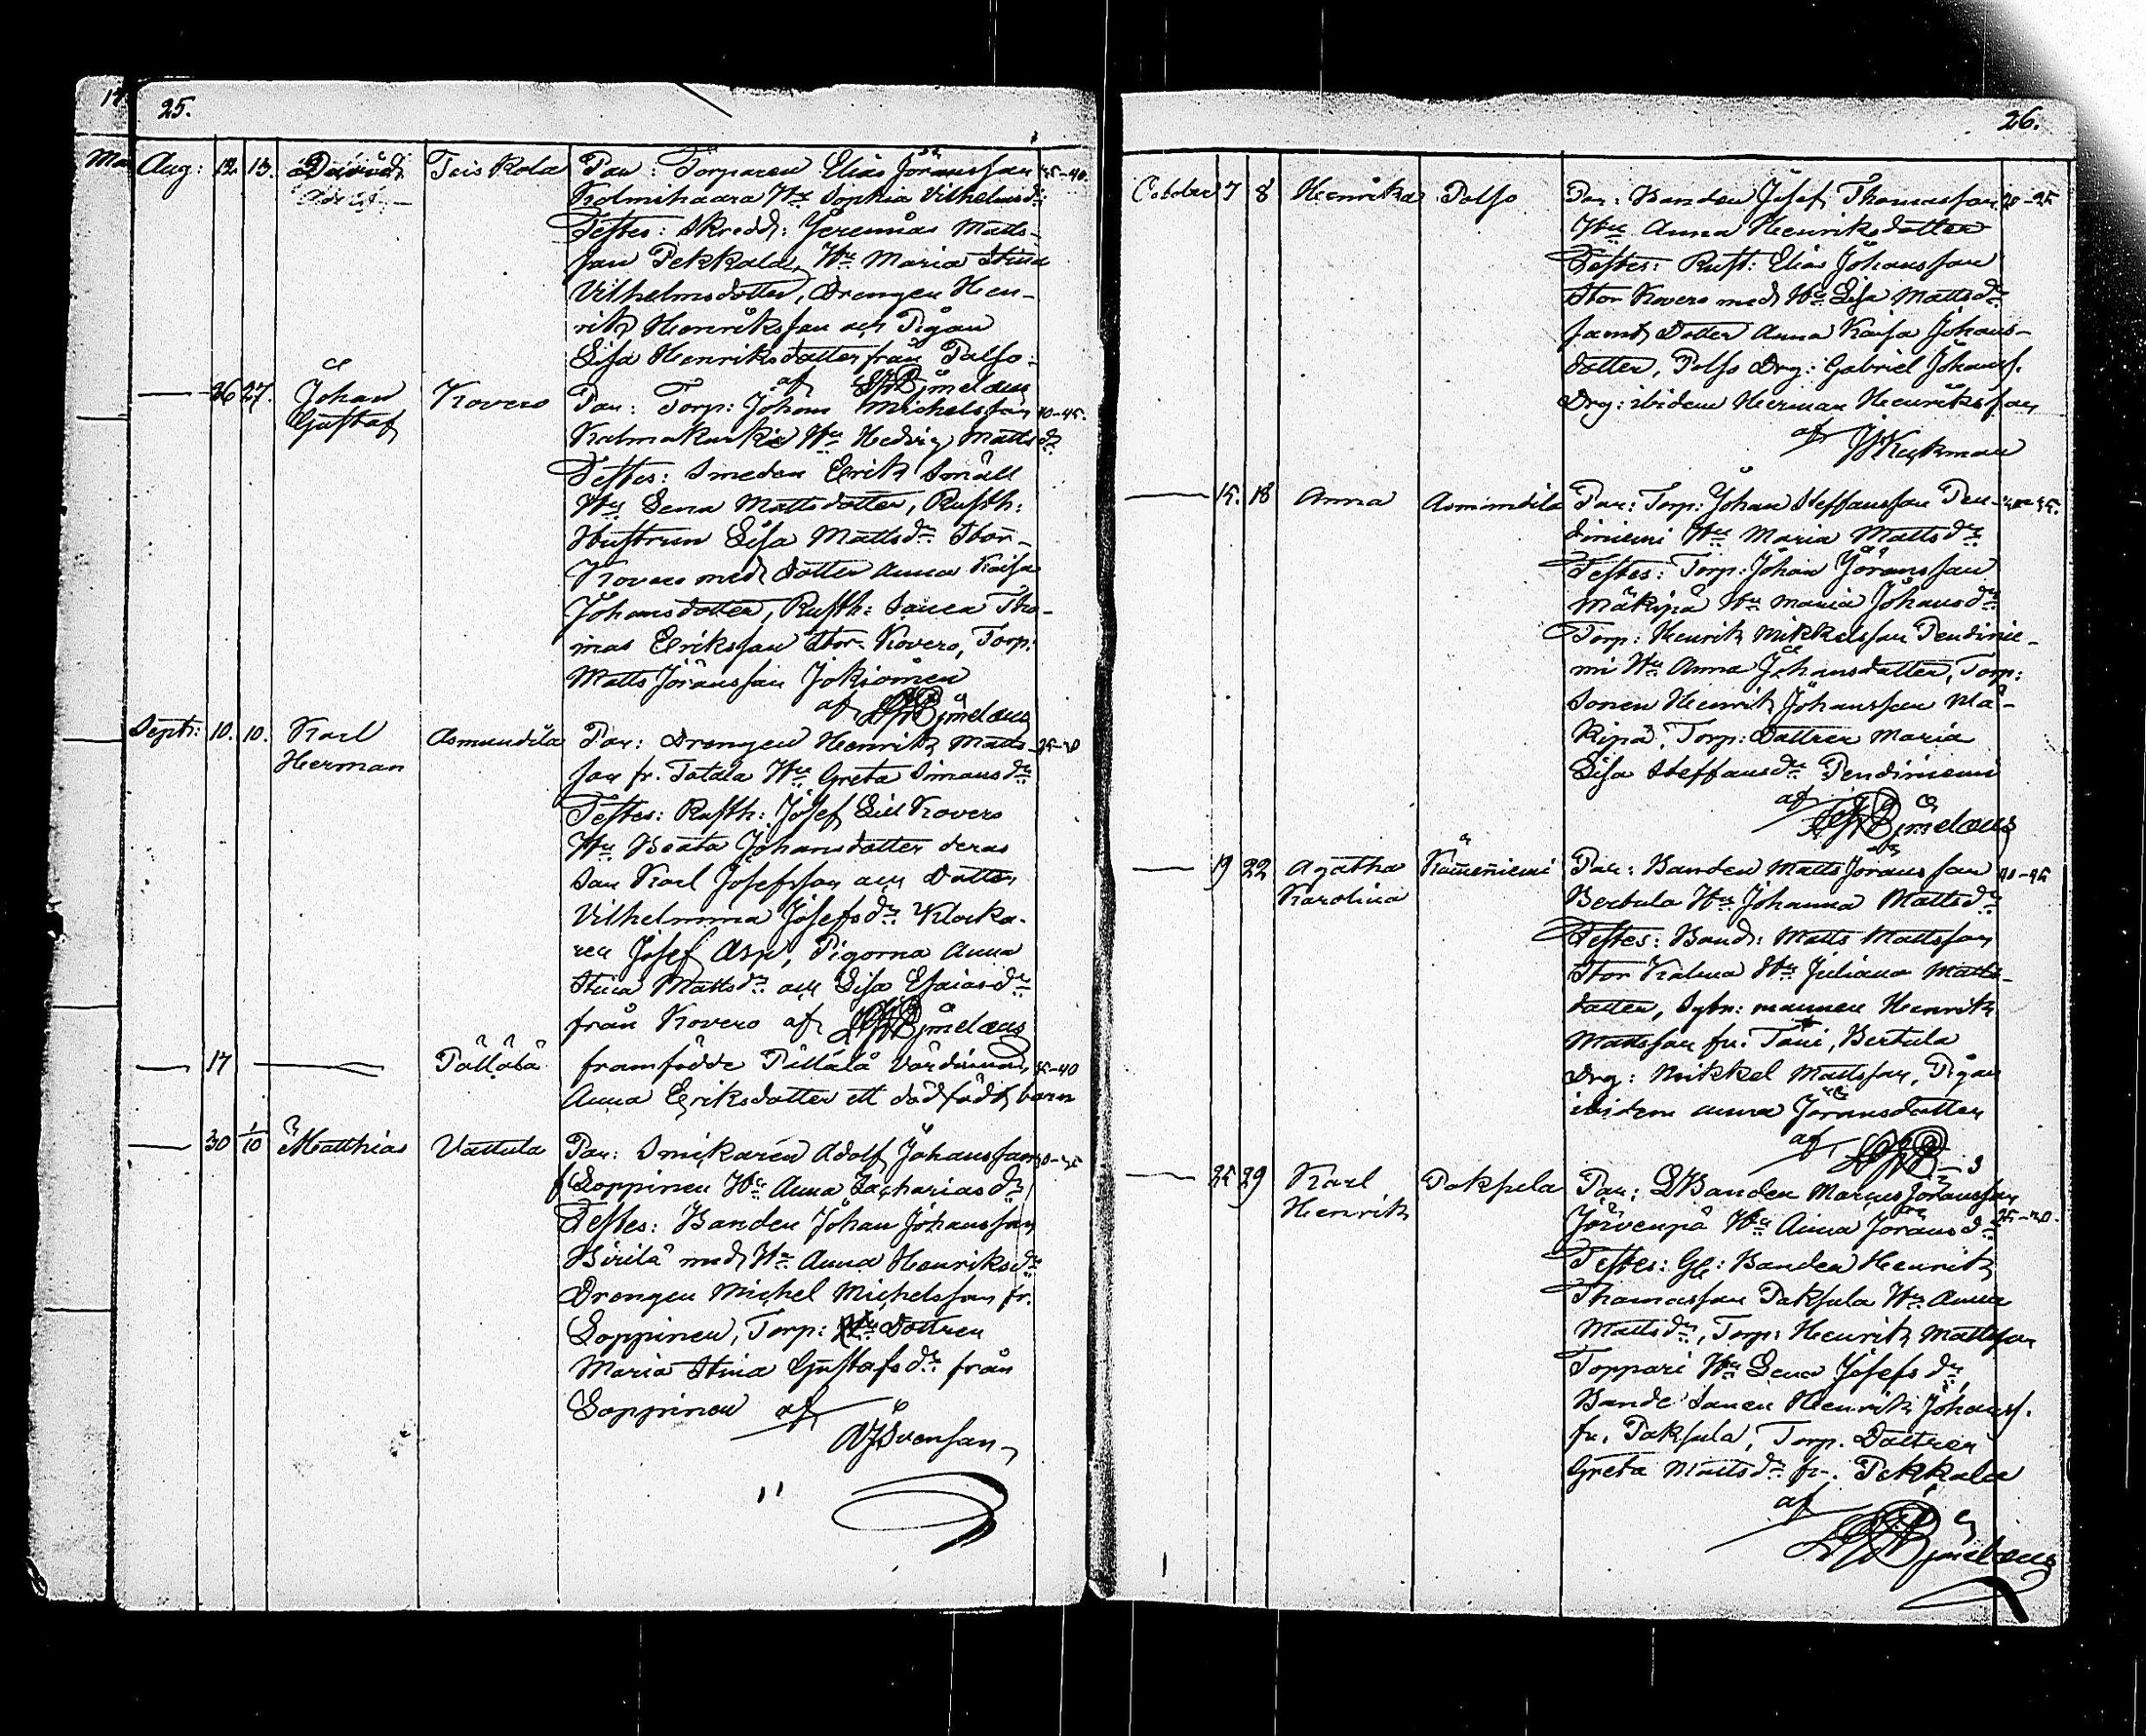 25.
Aug: 12. 13. David Adolf Teiskola Par: Torparen Elias Jöransson 35-40.
Kolmihaara Hu Sophia Vilhelmsdr
Testes: Skredd: Jeremias Matts-
son Pekkala, Hu Maria Stina
Vilhelmsdotter, Drengen Hen-
rik Henriksson och Pigan
Lisa Henriksdotter från Palso
af
26 27. Johan Kovero Par: Torp: Johan Michelsson 40-45.
Gustaf Hu Hedvig Mattsdr
Testes: Smeden Erik Småll
Hu Lena Mattsdotter, Rusth:
Hustrun Lisa Mattsdr Stor-
Kovero med dotter Anna Kaisa
Johansdotter, Rusth: Sonen Tho-
mas Eriksson Stor-Kovero, Torp:
Matts Jöransson Jokiainen
af
Septr: 10. 10. Karl Asmundila Par: Drengen Henrik Matts- 25-30
Herman son fr. Tatala Hu Greta Simonsdr
Testes: Rusth: Josef Lill Kovero
Hu Beata Johansdotter deras
Son Karl Josefsson och Dotter
Vilhelmina Josefsdr Klocka-
ren Josef Asp, Pigorna Anna
Stina Mattsdr och Lisa Esaiasdr
från Kovero af
17 framfödde Pällälä Värdinnan 35-40
Anna Eriksdotter ett dödfödt barn
30 1/10 Matthias Vattula Par: Snickaren Adolf Johansson 30-35
Soppinen Hu Anna Zachariasdr
Testes: Bonden Johan Johansson
Birilä med Hu Anna Henriksdr
Drengen Michel Michelsson fr.
Soppinen, Torp: Dottren
Maria Stina Gustafsdr från
Soppinen af
Svenson
26.
October 7 8 Henrika Palso Par: Bonden Josef Thomasson 20-25
Hu Anna Henriksdotter
Testes: Rust: Elias Johansson
Stor Kovero med Hu Lisa Mattsdr
samt Dotter Anna Kaisa Johans-
dotter, Palso Drg: Gabriel Johanss.
Drg: ibidem Herman Henriksson
af
15. 18 Anna Asmundila Par: Torp: Johan Steffansson Pen-
diniemi Hu Maria Mattsdr
Testes: Torp: Johan Jöransson
Mäkipä Hu Maria Johansdr
Torp: Henrik Mikkelsson Pendinie-
mi Hu Anna Johansdotter, Torp:
Sonen Henrik Johansson Mä-
kipä, Torp: Dottren Maria
Lisa Steffansdr Pendiniemi
af
19 22 Agatha Par: Bonden Matts Jöransson 40-45
Karolina Bertula Hu Johanna Mattsdr
Testes: Bond: Matts Mattsson
Stor Kalma Hu Juliana Matts-
dotter, Sytn: mannen Henrik
Mattsson fr. Bertula
Drg: Mikkel Mattsson, Pigan
ibidem Anna Jöransdotter
af
25 29 Karl Paksula Par: Bonden Marcus Jöransson
Henrik Järvenpä Hu Anna Jöransdr 25-30.
Testes: Gl: Bonden Henrik
Thomasson Paksula Hu Anna
Mattsdr, Torp: Henrik Mattsson
Toppari Hu Lena Josefsdr,
Bonde Sonen Henrik Johanss.
fr. Paksula, Torp. Dottren
Greta Mattsdr fr. Pekkala
af